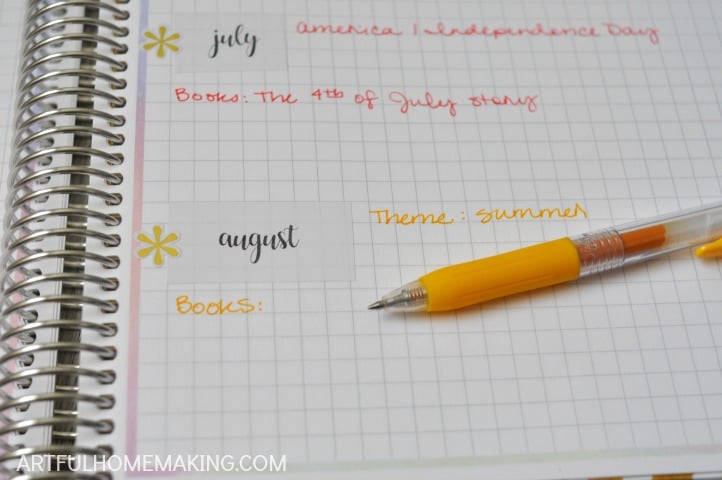 july
america / Independence Day
Books: The 4th of July story
august
Theme: summer
Books:
ARTFULHOMEMAKING.COM